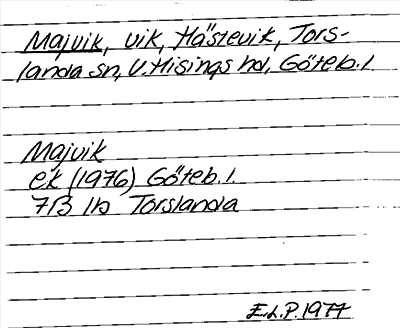 Majvik, vik, Hästevik, Tors-
landa sn, V. Hisings hd, Göteb. l.
Majvik
ek (1976) Göteb. l.
7B 1b Torslanda
E.L.P. 1977